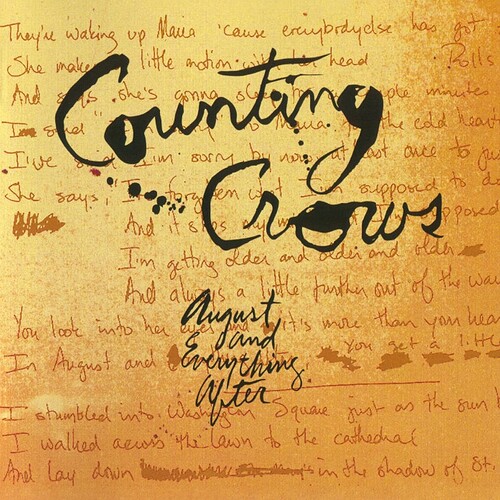 They're waking up Maria 'cause everybody else has got
She makes little motion with her head Rolls
And says she's gonna sleep minutes
I'm to Maria the cold
Counting
I've I'm sorry by now at least once to
She says, I'm supposed to
Crows
And it stops my
I'm getting older and older and older
And always a little further out of the
August
You look into her eyes and it's more than your
and
Everything
In August and You get a little
After
I stumbled into Washington Square just as the sun
I walked across the lawn to the cathedral
And lay down in the shadow of St.